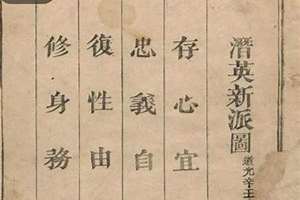 潛英新派圖
道光辛
存心宜
忠義自
復性由
修身務